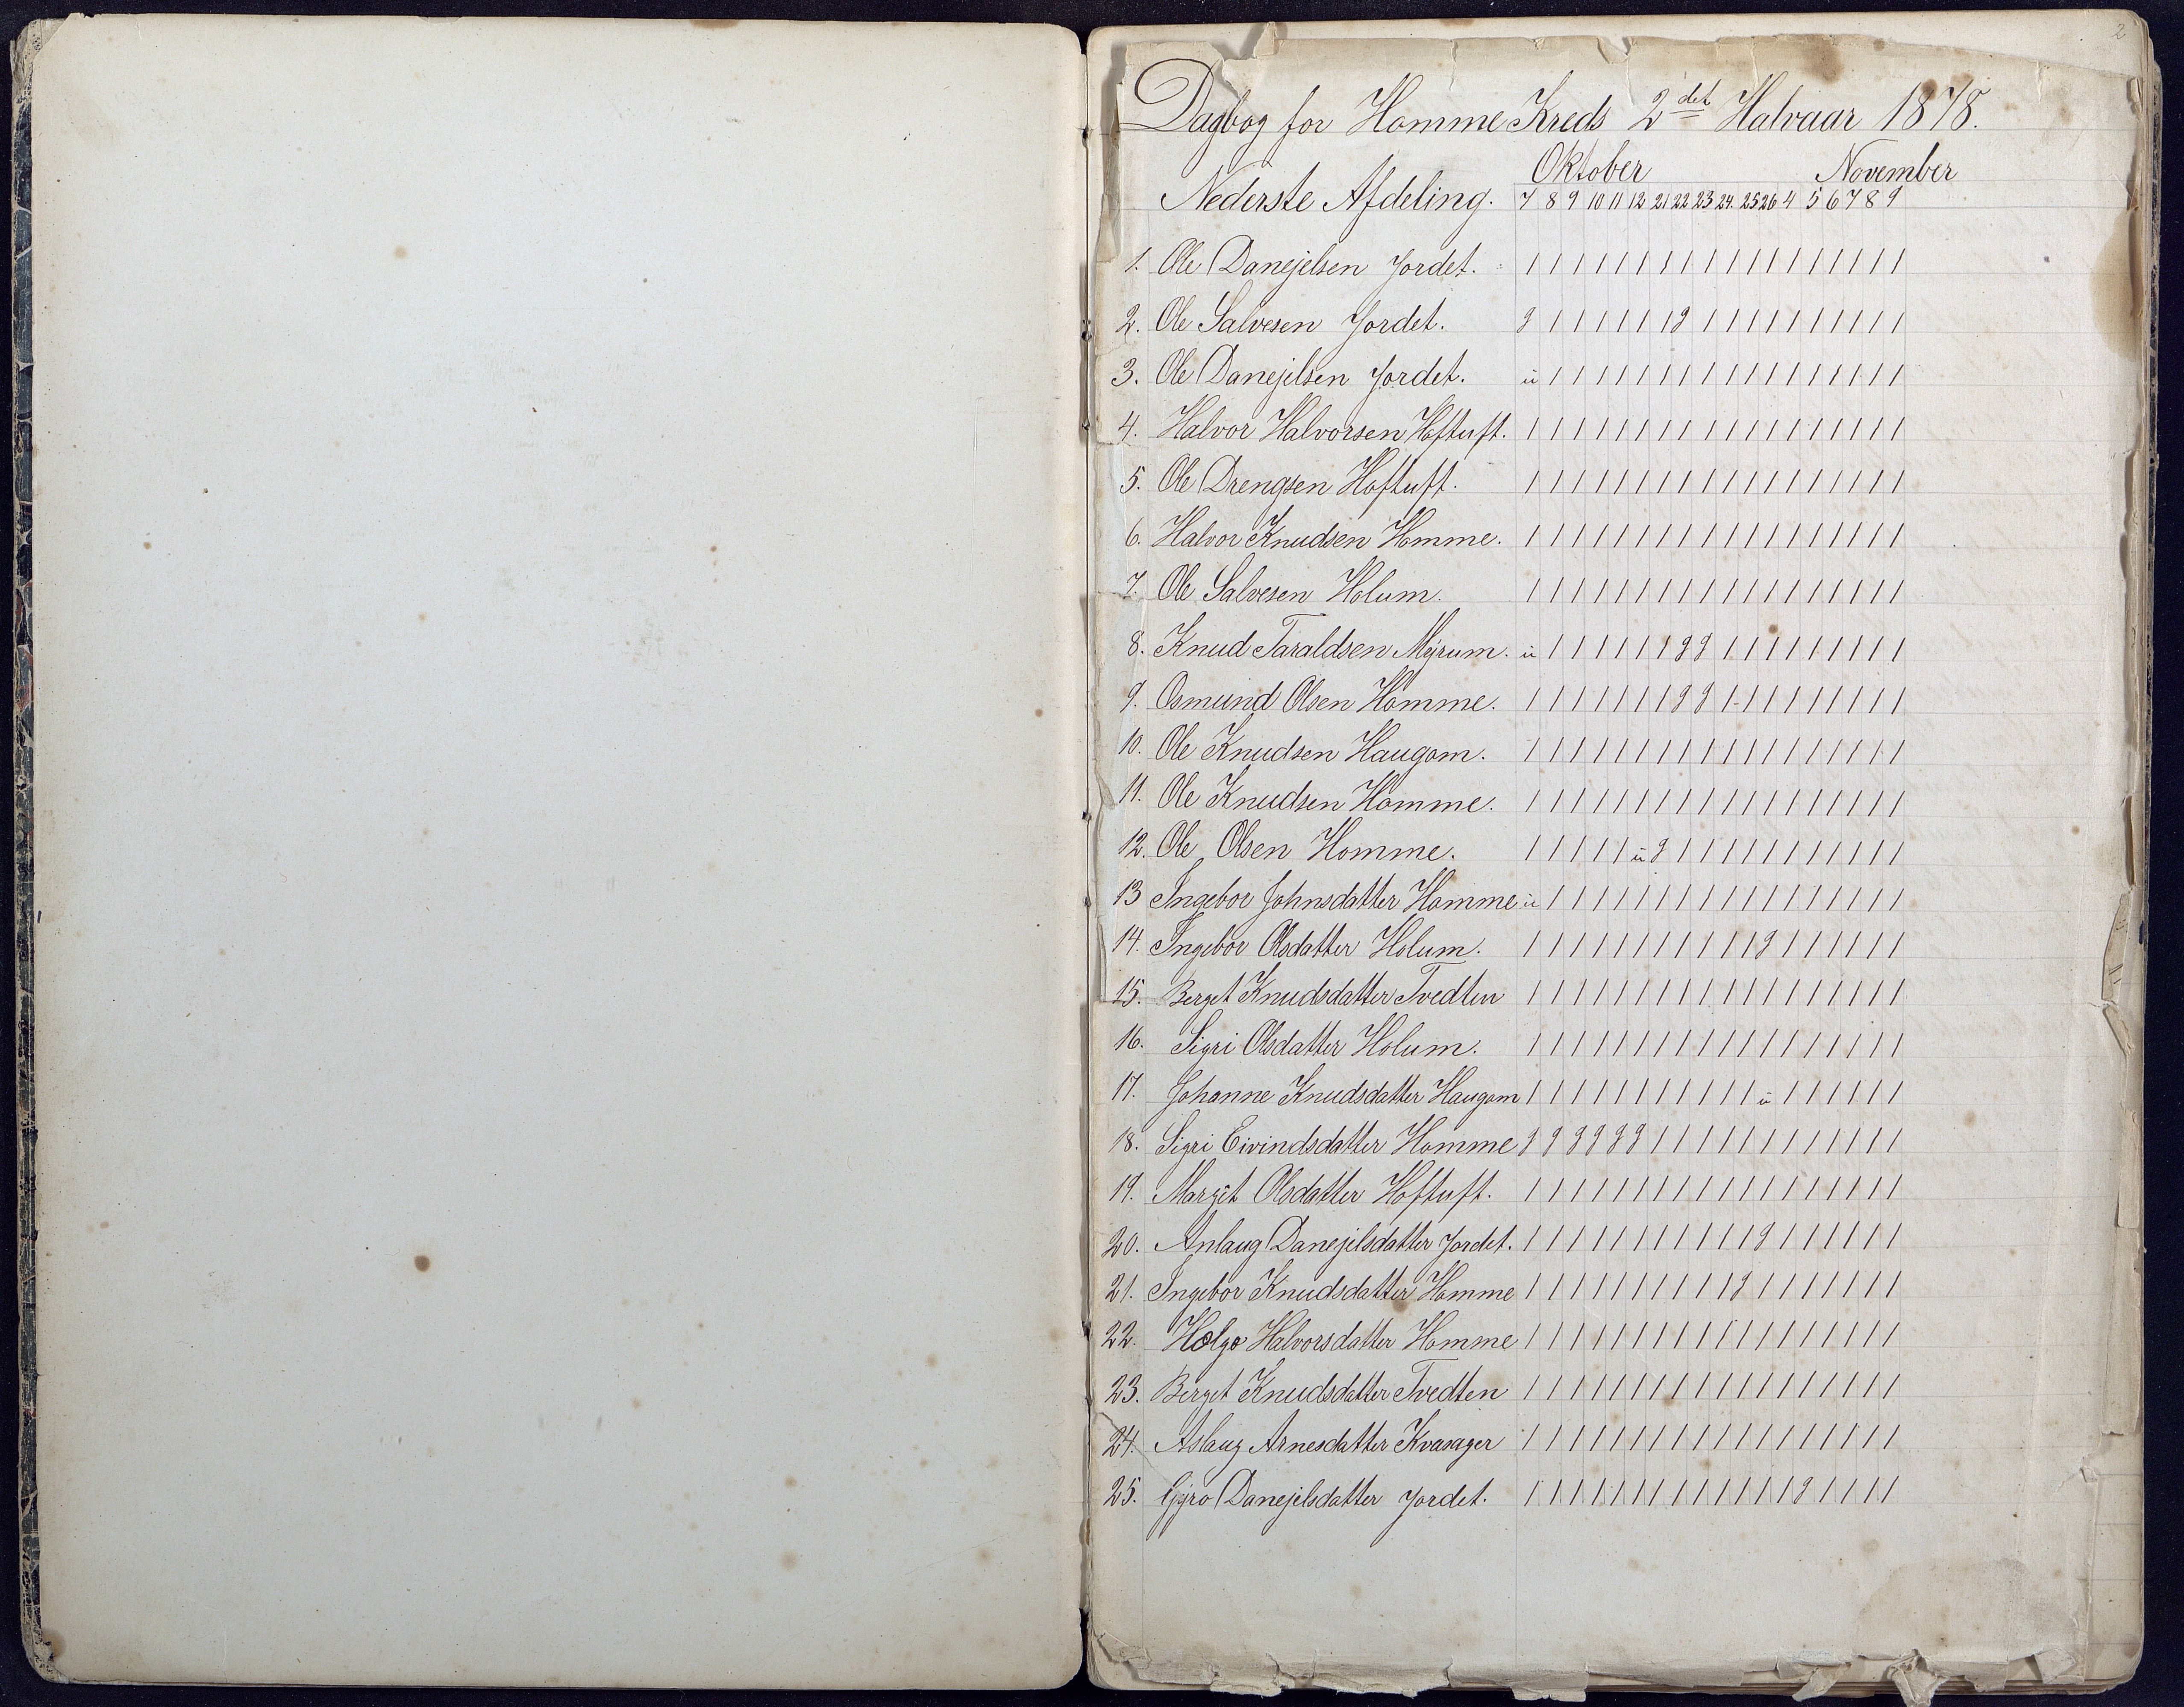 2
Dagbog for Homme Kreds 2det Halvaar 1878.
Oktober November
Nederste Afdeling. 7 8 9 10 11 12 21 22 23 24. 25 26 4 5 6 7 8 9
1. Ole Danejelsen Jordet. 1 1 1 1 1 1 1 1 1 1 1 1 1 1 1 1 1 1
2. Ole Salvesen Jordet. g 1 1 1 1 1 1 g 1 1 1 1 1 1 1 1 1 1
3. Ole Danejelsen Jordet. u 1 1 1 1 1 1 1 1 1 1 1 1 1 1 1 1 1
4. Halvor Halvorsen Hoftuft. 1 1 1 1 1 1 1 1 1 1 1 1 1 1 1 1 1 1
5. Ole Drengsen Hoftuft. 1 1 1 1 1 1 1 1 1 1 1 1 1 1 1 1 1 1
6. Halvor Knudsen Homme. 1 1 1 1 1 1 1 1 1 1 1 1 1 1 1 1 1 1
7. Ole Salvesen Holum. 1 1 1 1 1 1 1 1 1 1 1 1 1 1 1 1 1 1
8. Knud Taraldsen Myrum. u 1 1 1 1 1 1 g g 1 1 1 1 1 1 1 1 1
9. Osmund Olsen Homme. 1 1 1 1 1 1 1 g g 1 1 1 1 1 1 1 1 1
10. Ole Knudsen Haugom. 1 1 1 1 1 1 1 1 1 1 1 1 1 1 1 1 1 1
11. Ole Knudsen Homme. 1 1 1 1 1 1 1 1 1 1 1 1 1 1 1 1 1 1
12. Ole Olsen Homme. 1 1 1 1 1 u g 1 1 1 1 1 1 1 1 1 1 1
13 Ingebor Johnsdatter Homme u 1 1 1 1 1 1 1 1 1 1 1 1 1 1 1 1 1
14. Ingebor Olsdatter Holum. 1 1 1 1 1 1 1 1 1 1 1 g 1 1 1 1 1 1
15. Berget Knudsdatter Tvedten 1 1 1 1 1 1 1 1 1 1 1 1 1 1 1 1 1 1
16. Sigri Olsdatter Holum. 1 1 1 1 1 1 1 1 1 1 1 1 1 1 1 1 1 1
17. Johanne Knudsdatter Haugom 1 1 1 1 1 1 1 1 1 1 1 u 1 1 1 1 1 1
18. Sigri Eivindsdatter Homme g g g g g g 1 1 1 1 1 1 1 1 1 1 1 1
19. Margit Olsdatter Hoftuft. 1 1 1 1 1 1 1 1 1 1 1 1 1 1 1 1 1 1
20. Anlaug Danejelsdatter Jordet. 1 1 1 1 1 1 1 1 1 1 1 g 1 1 1 1 1 1
21. Ingebor Knudsdatter Homme 1 1 1 1 1 1 1 1 1 1 g 1 1 1 1 1 1 1
22. Holge Halvorsdatter Homme 1 1 1 1 1 1 1 1 1 1 1 1 1 1 1 1 1 1
23. Berget Knudsdatter Tvedten 1 1 1 1 1 1 1 1 1 1 1 1 1 1 1 1 1 1
24. Aslaug Arnesdatter Kvasager 1 1 1 1 1 1 1 1 1 1 1 1 1 1 1 1 1 1
25. Gjro Danejelsdatter Jordet. 1 1 1 1 1 1 1 1 1 1 1 1 1 g 1 1 1 1